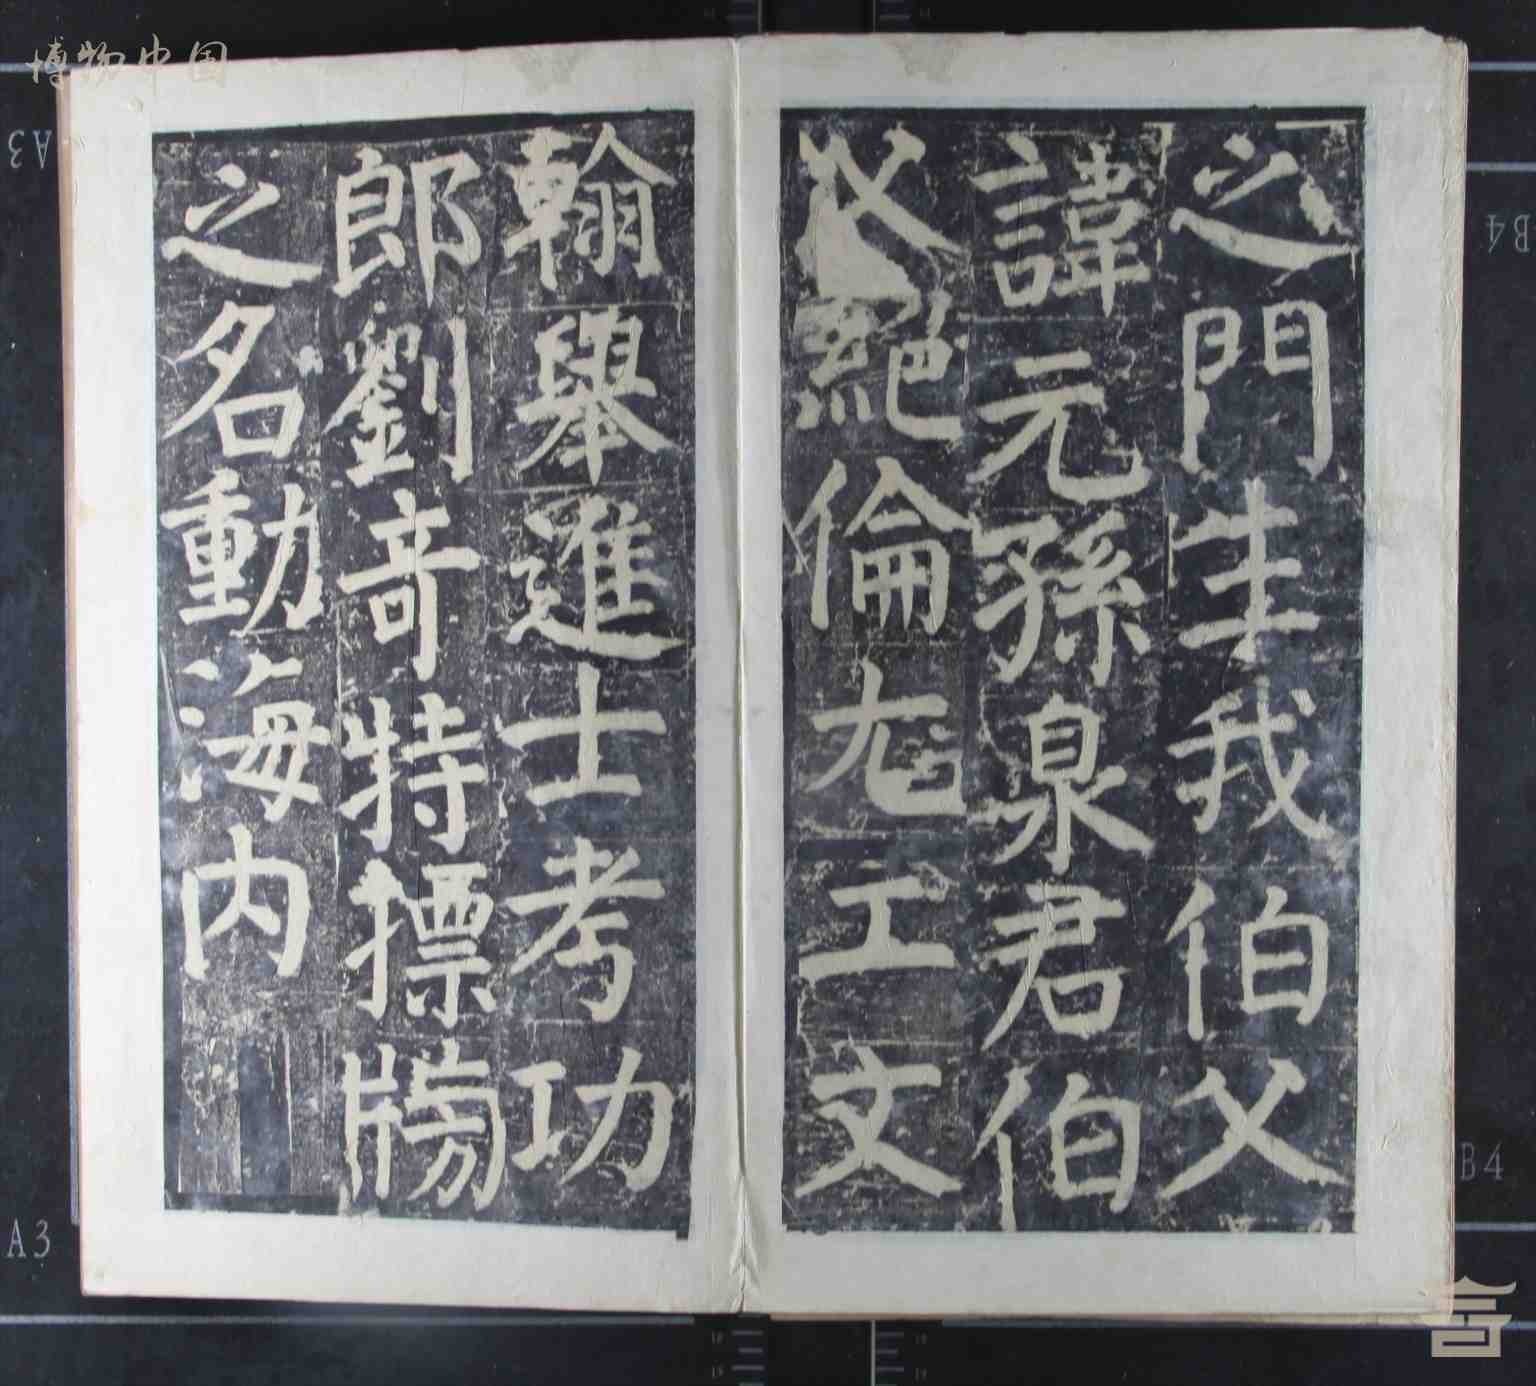 之門生我伯父
諱元孫泉君伯
父絕倫尤工文
翰舉進士考功
郎劉竒特摽牓
之名動海内
博物中国
A3
A3
B4
B4